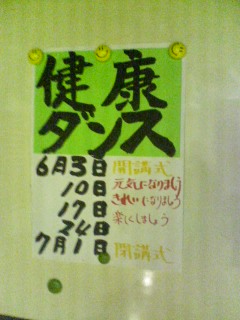 健康
ダンス
6月3日 開講式
10日 元気になりましょう
17日 きれいになりましょう
24日 楽しくしましょう
7月1日 閉講式